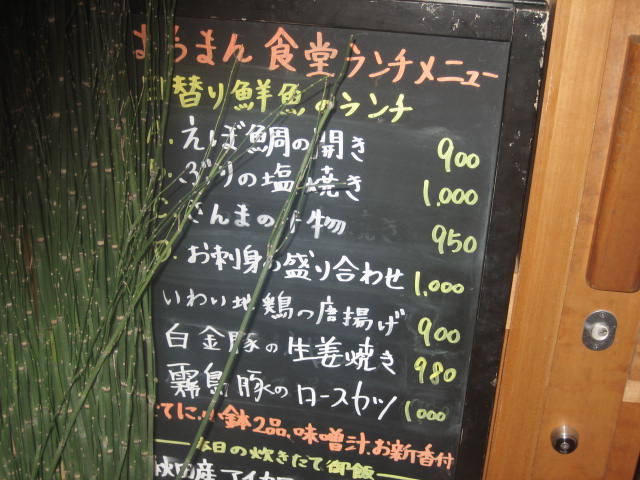 まん食堂ランチメニュー
替り鮮魚のランチ
えぼ鯛の開き 900
ぶりの塩焼き 1,000
さんまの干物 950
お刺身の盛り合わせ 1,000
いわい地鶏の唐揚げ 900
白金豚の生姜焼き 980
霧島豚のロースカツ 1000
てに、小鉢2品、味噌汁、お新香付
毎日の炊きたて御飯
秋田産